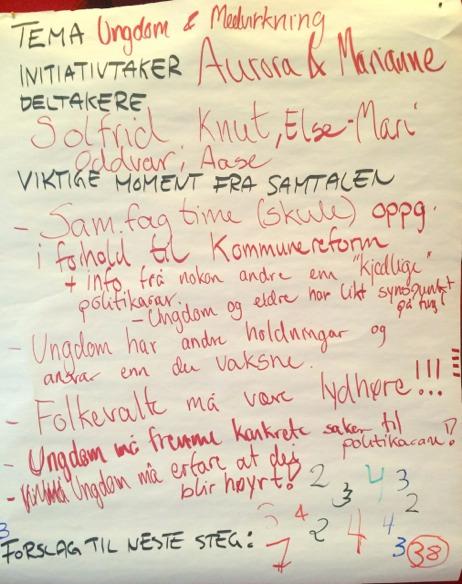 TEMA Ungdom & Medvirkning
INITIATIVTAKER Aurora & Marianne
DELTAKERE
Solfrid Knut, Else-Mari
Oddvar, Aase
VIKTIGE MOMENT FRA SAMTALEN
- Sam.fag time (skule) oppg.
i forhold til Kommunereform
+ info. frå nokon andre enn "kjedlige"
politikarar.
- Ungdom og eldre har likt synspunkt
på ting!
- Ungdom har andre holdningar og
ansvar enn du vaksne.
- Folkevalte må være lydhøre!!!
- Ungdom må fremme konkrete saker til
politikarane!?
- Ungdom må erfare at dei
blir høyrt!
2 4 3
3 2
3 4 2 4 4
3
FORSLAG TIL NESTE STEG: 7 3 38